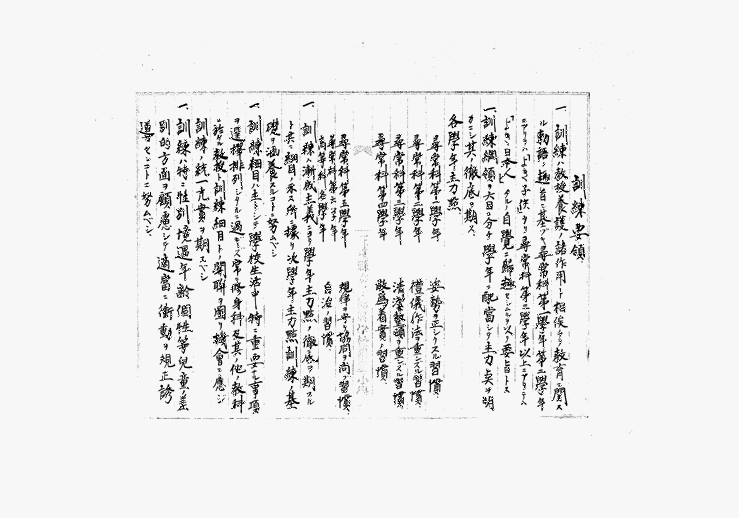 訓練要領
一、訓練ハ教授養護ノ諸作用ト相俟チテ教育ニ関ス
ル勅語ノ趣旨ニ基ヅキ尋常科第一学年第二学年
ニアリテハ「よき子供」タリ尋常科第三学年以上ニアリテハ
「よき日本人」タルノ自覚ニ帰趨セシムルヲ以テ要旨トス
一、訓練綱領ヲ六目ニ分チ学年ニ配当シテ主力点ヲ明
カニシ其ノ徹底ヲ期ス
各学年主力点
尋常科第一学年 姿勢ヲ正シクスル習慣
尋常科第二学年 礼儀作法ヲ重ンズル習慣
尋常科第三学年 清潔整頓ヲ重ンズル習慣
尋常科第四学年 敢為着実ノ習慣
尋常科第五学年 規律ヲ守リ協同ヲ尚ブ習慣
尋常科第六学年
高等科各学年 自治ノ習慣
一、訓練漸成主義ニヨリ学年主力点ノ徹底ヲ期スル
ト共ニ細目ニ示ス所ニ拠リ次学年主力点訓練ノ基
礎ヲ涵養スルコトニ努ムベシ
一、訓練細目ハ主トシテ学校生活中特ニ重要ナル事項
ヲ選択排列シタルニ過ギズ常ニ修身科及其ノ他教科
ニ於ケル教授ト訓練細目トノ関聯ヲ図リ機会ニ応ジ
訓練ノ統一充実ヲ期スベシ
一、訓練ハ特ニ性別境遇年齢個性等児童ノ差
別的方面ヲ顧慮シテ適当ニ衝動ヲ規正誘
導センコトニ努ムベシ